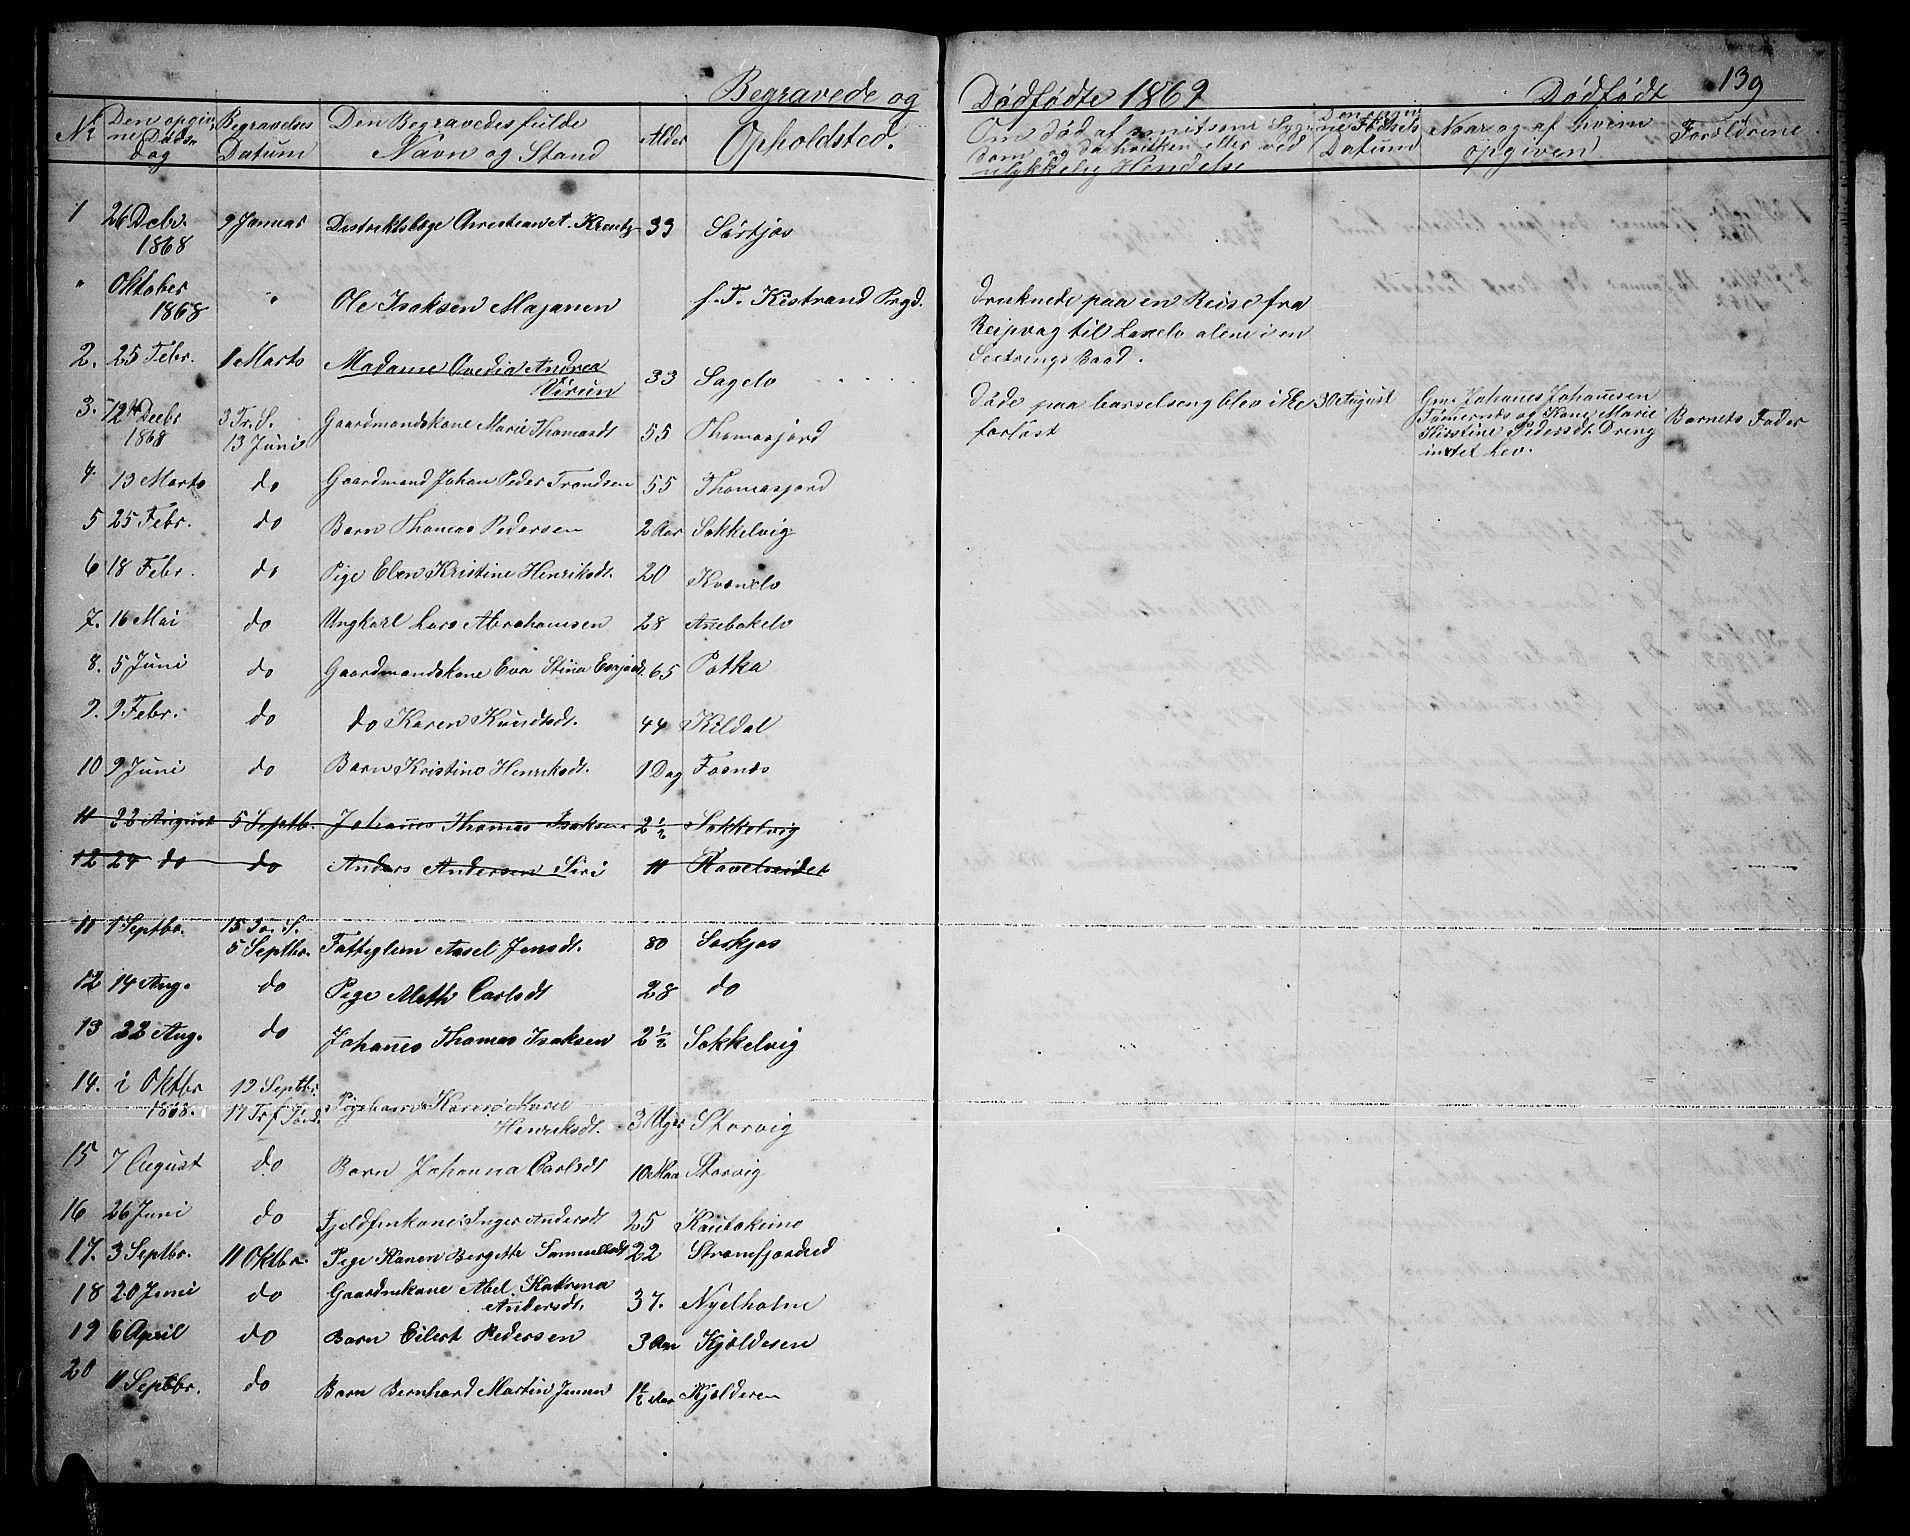 Begravede og Dødfødte 1869 Dødfødt 139
No Den opgivne Døds Dag Begravelses Datum Den Begravedes fulde Navn og Stand Alder Opholdsted. Om død af smitsom Sygdom og da hvilken eller ved ulykkelig Hendelse Den opgivne Fødsels Datum Naar og af hvem opgiven Forældrene
1 26 Decbr. 1868 9 Januar Distriktslæge Christian A. 33 Sørkjos
" Oktober 1868 " Ole Isaksen Majanen f. T. Kistrand Prgd. Druknede paa en Reise fra
Reipvag til Laxelv alene i en
Baad.
2. 25 Febr. 1 Marts Madame Ovedia Andrea 33 Sagelv
3. 12te Decbr 1868 3 Tr. S. 13 Juni Gaardmandskone Marie Thomasdt 55 Thomasjord Døde paa barselseng blev ikke forløst 30 August Gm. Johanes Johanesen
og Kone Marie
Kirstine Pedersdt. Dreng
intet Lev. Barnets Fader
4. 13 Marts do Gaardmand Johan Peder Trondsen 55 Thomasjord
5 25 Febr. do Barn Thomas Pedersen 2 Aar Sokkelvig
6 18 Febr. do Pige Elen Kristine Henriksdt. 20 Kvænelv
7. 16 Mai do Ungkarl Lars Abrahamsen 28
8. 5 Juni do Gaardmandskone Eva Stina 65 Potka
9. 9 Febr. do do Karen Knudsdt. 44 Kildal
10 9 Juni do Barn Kristine Henriksdt. 1 Dag
11 22 August 5 Septb. Johanes Thomas Isaksen 2 1/2 Sokkelvig
12 24 do do Anders Andersen Siri 11 Ravelseidet
11 1 Septbr. 15 Tr. S. 5 Septbr. Fattiglem Axsel Jensdt. 80 Sørkjos
12 14 Aug. do Pige Marth Carlsdt 28 do
13 22 Aug. do Johanes Thomas Isaksen 2 1/2 Sokkelvig
14. i Oktbr 1868. 12 Septbr. Pigebarn Karen Marie
Henriksdt. 3 Uger Storvig
15 7 August do Barn Johanna Carlsdt 10 Maa Storvig
16 26 Juni do Fjeldfinkone Inger Andersdt 25 Koutokeino
17. 3 Septbr. 11 Oktbr. Pige Karen Bergette Samuelsdt 22 Strømfjordeid
18 20 Juni do Gaardmkone Abel Katrina
Andersdt. 37. Nyelholm
19 6 April do Barn Eilert Pedersen 3 Aar Kjølderen
20 11 Septbr. do Barn Bernhard Martin Jensen 1 1/2 Aar Kjølderen